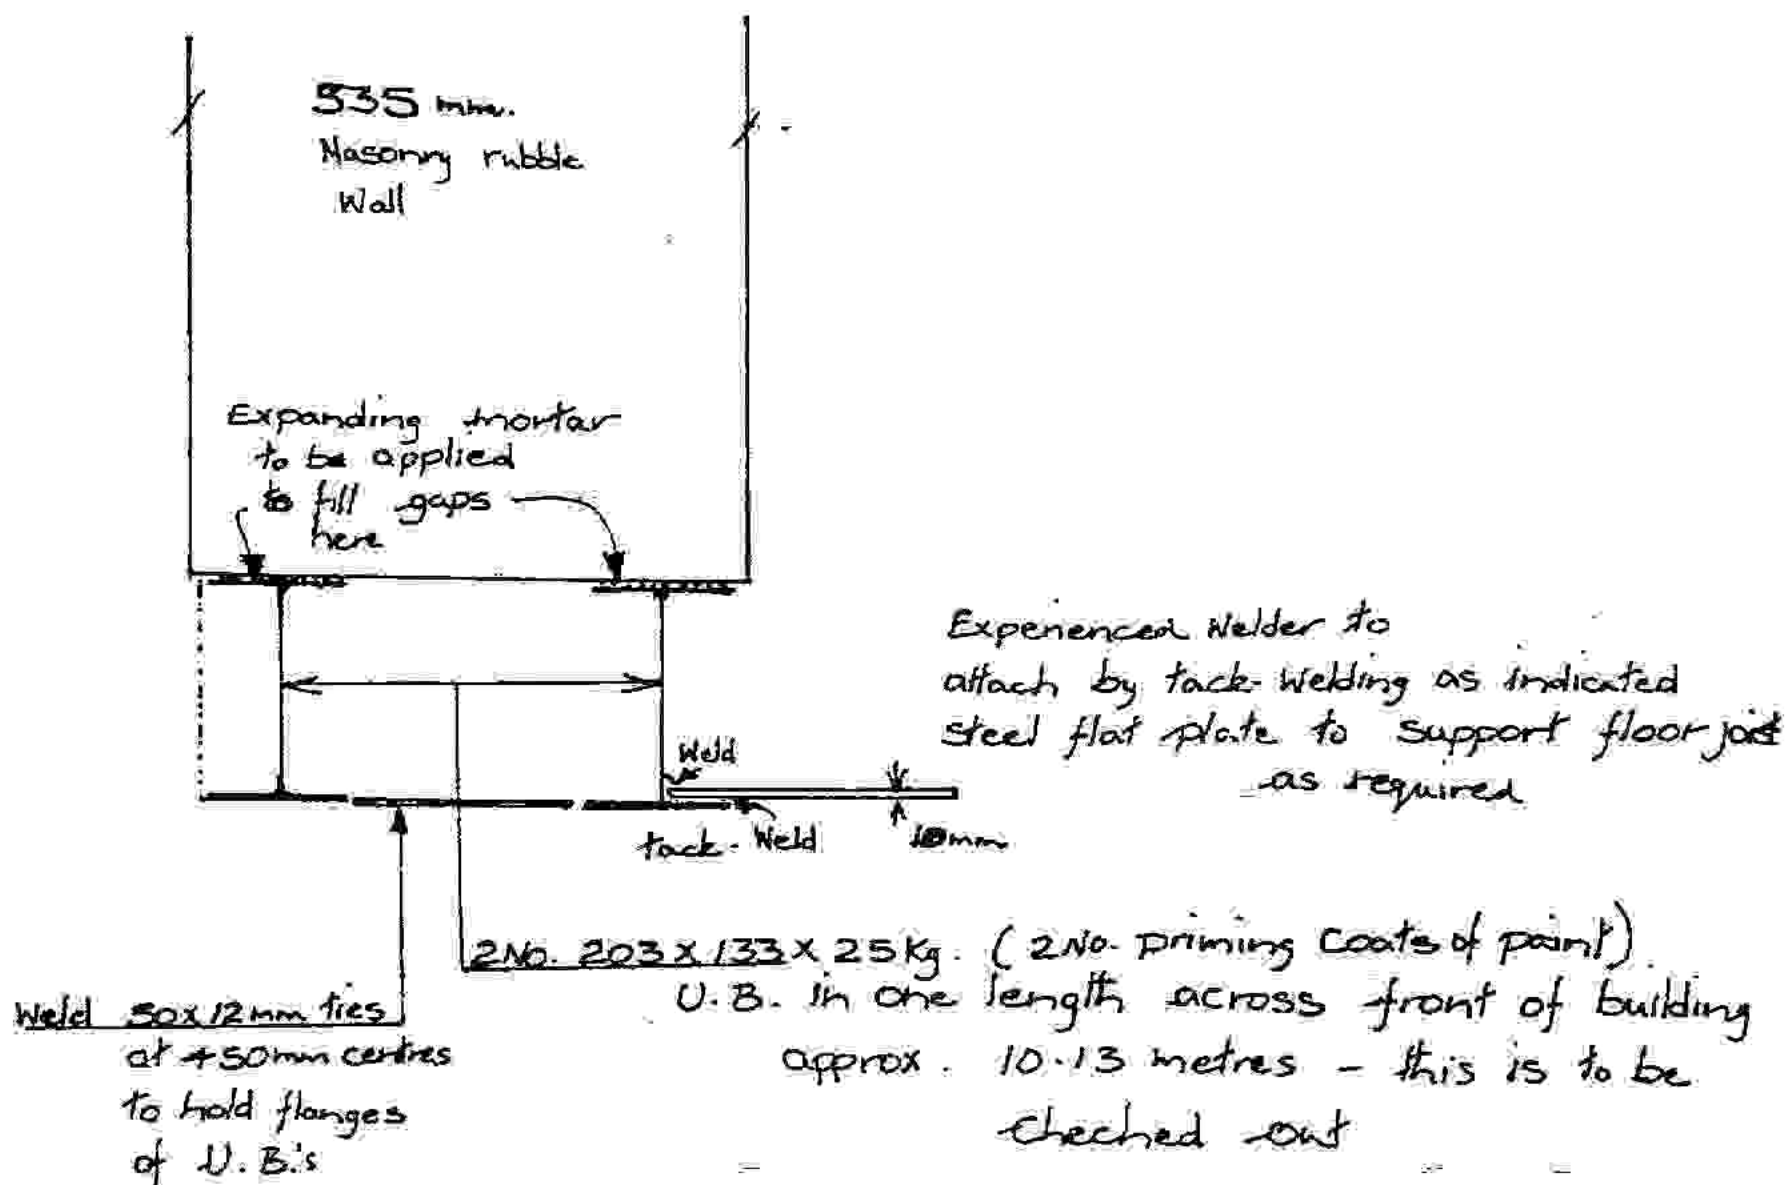 535 mm.
Masonry rubble
Wall
Expanding mortar
to be applied
to fill gaps
here
Experienced Welder to
attach by tack-Welding as indicated
steel flat plate to support floor joist
as required
Weld
tack-Weld
10mm
2No. 203 x 133 x 25 Kg. (2No. priming coats of paint)
U.B. in one length across front of building
approx. 10.13 metres - this is to be
cheched out
Weld 50x12mm ties
at 450mm centres
to hold flanges
of U.B.'s